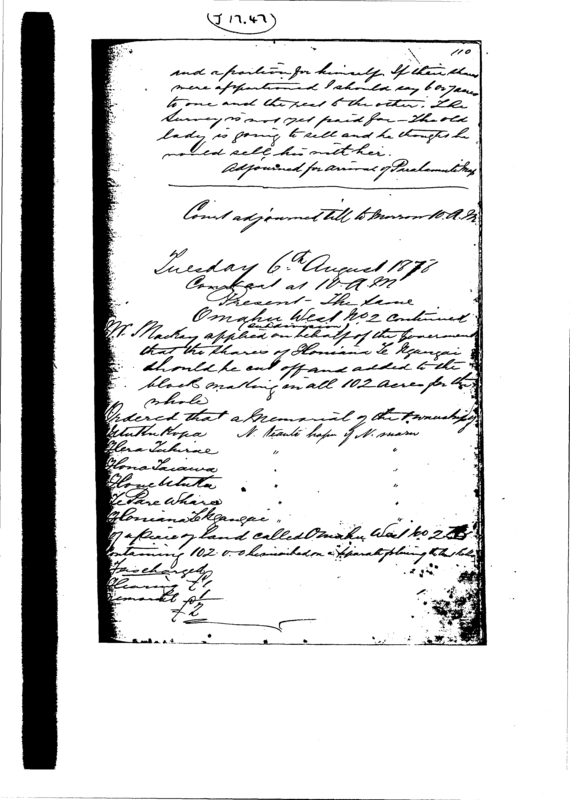 J 17.47
110
and a portion for himself. If their shares
were apportioned I should say 6 or 7 acres
to one and the rest to the other. The
Survey is not yet paid for - The old
lady is going to sell and he thought he
would sell his with her.
Adjourned for arrival of
Court adjourned till to morrow 10 A.M.
Tuesday 6th August 1878
Court sat at 10 A.M
Present - The same
Omahu West No 2 continued
(subdivision)
Mr Mackey applied on behalf of the Government
that the shares of Honiana Te
should be cut off and added to the
block making in all 102 Acres for the
whole
Ordered that a Memorial of the ownership of
N. hapu of N.
Hera " "
Hona Taiawa " "
Hone " "
Te Pare Whara " "
Honiana Te " "
of a piece of land called Omahu West No 2
containing 102 0 0
Fees charged
Hearing £1
Memorial £1
£2